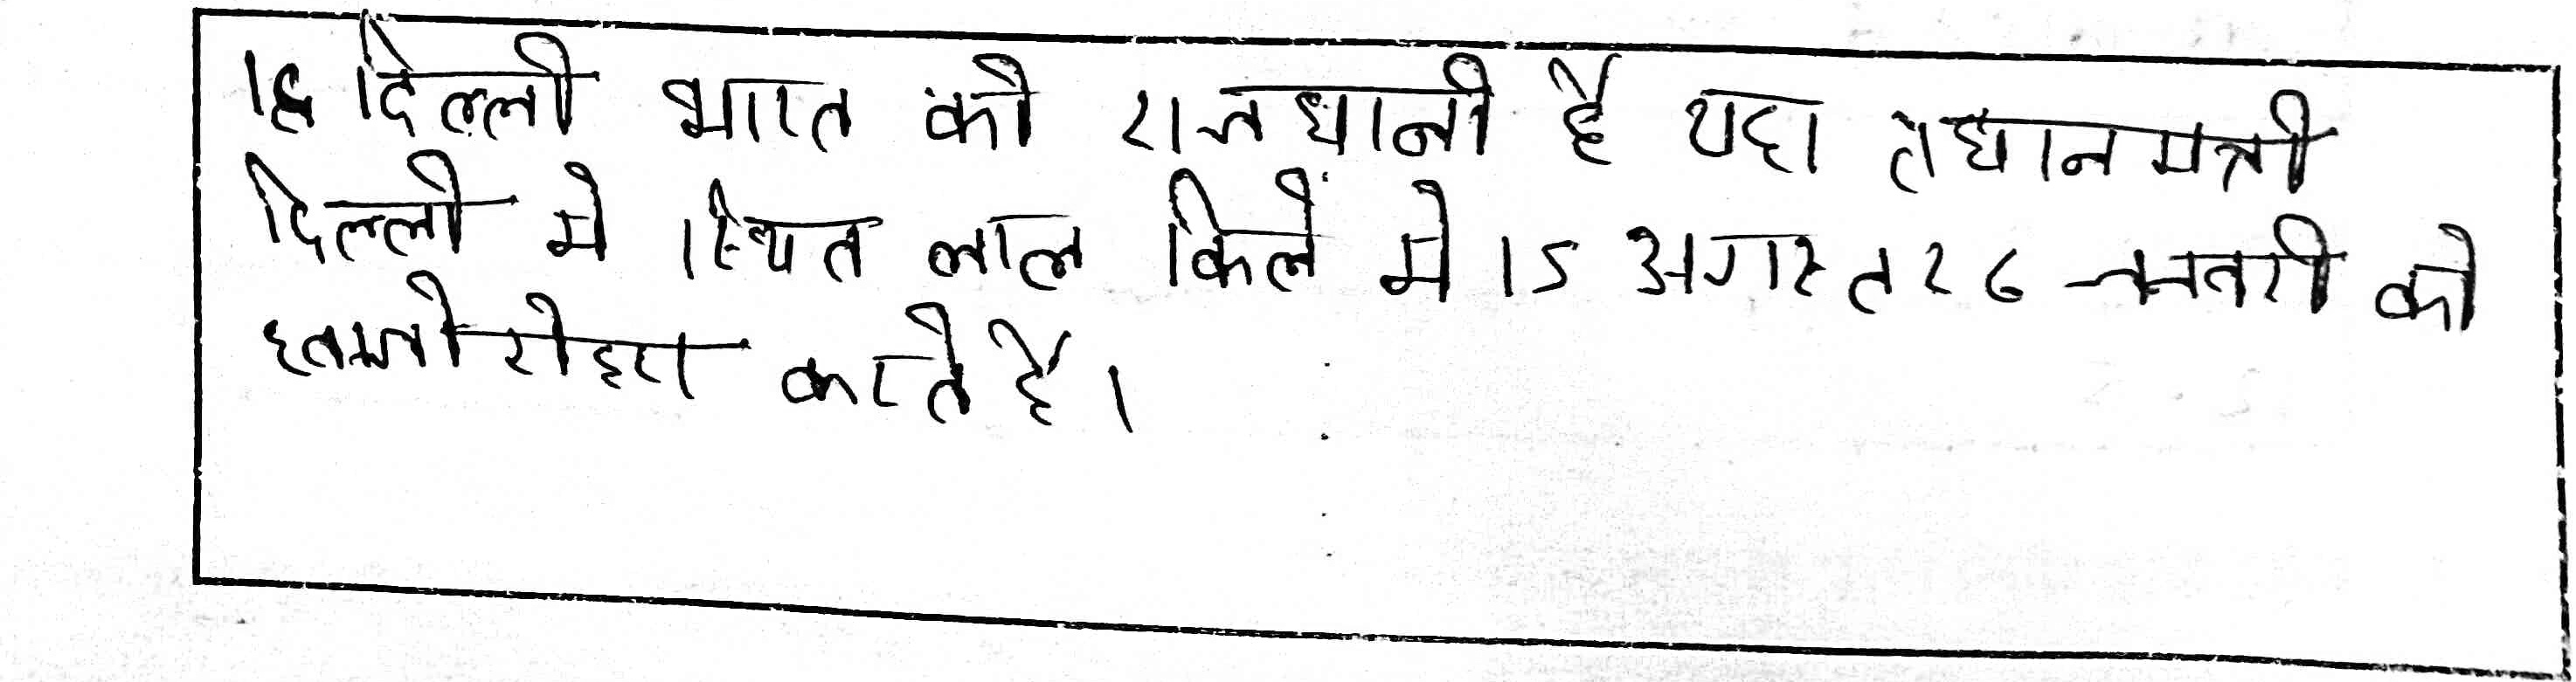 दिल्ली भारत की राजधानी है यहा प्रधानमत्री
दिल्ली मे स्थित लाल किले मे 15 अगस्त 26 जनवरी को
करते है।